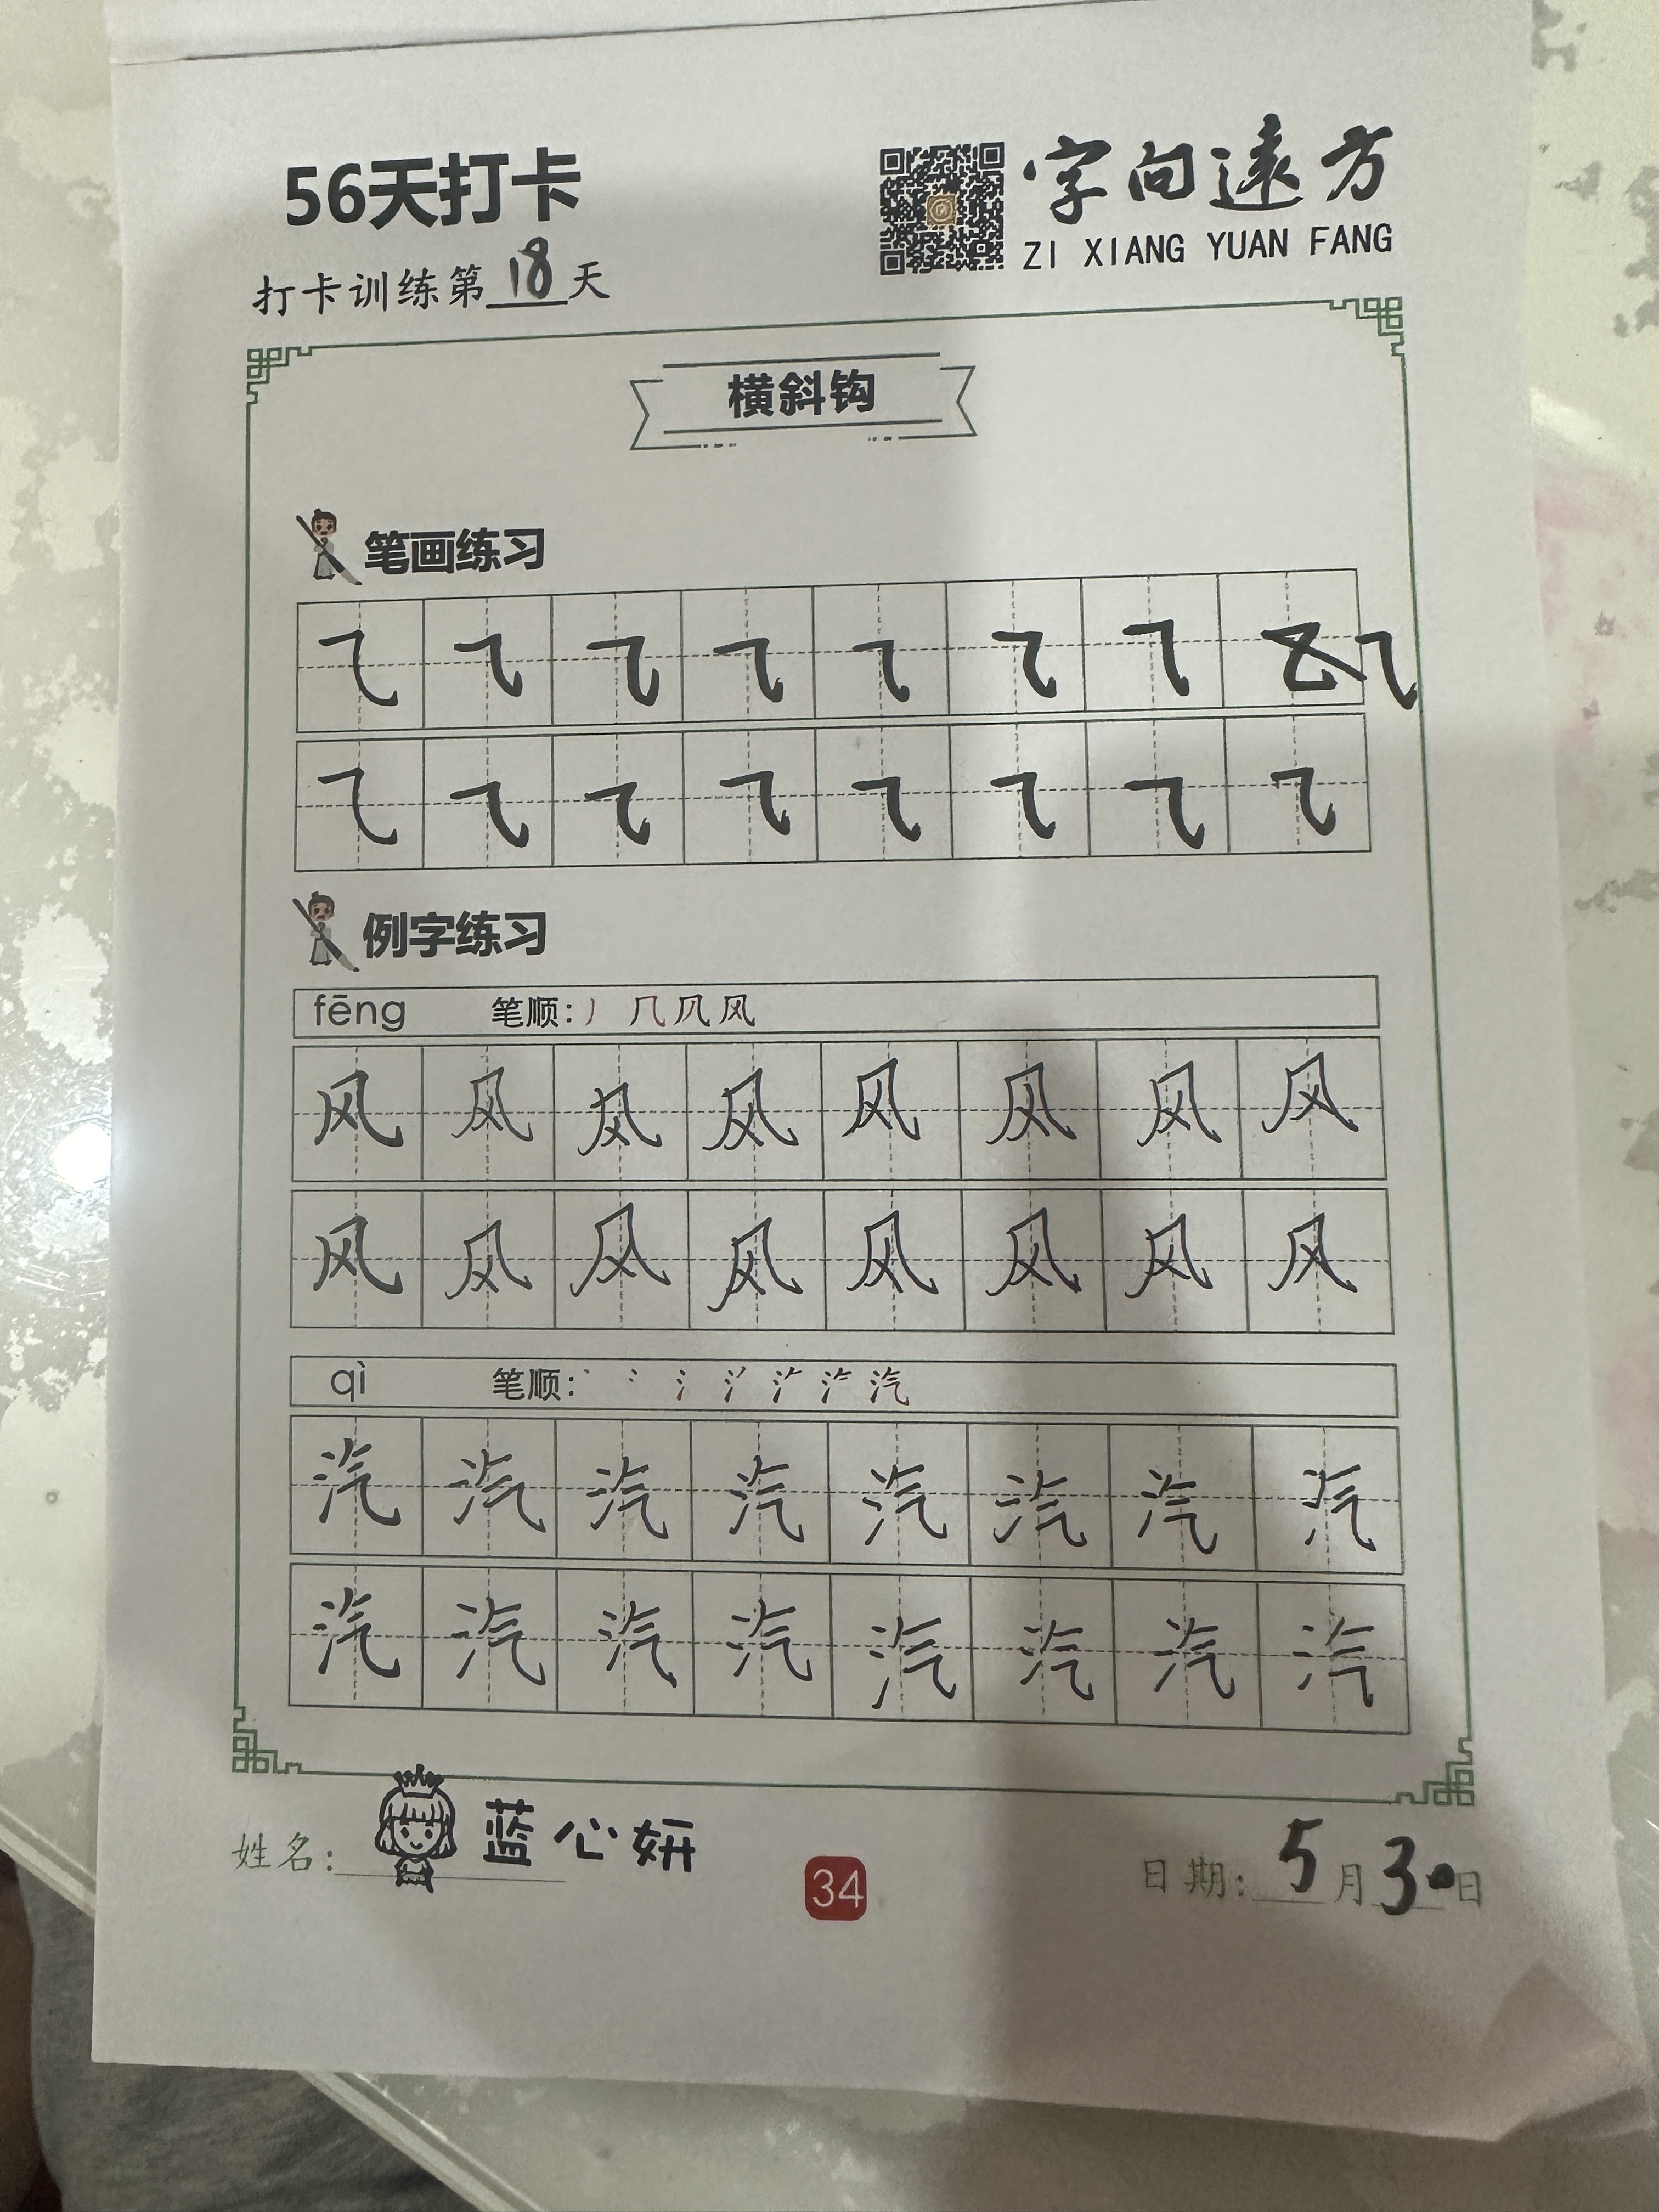 56天打卡
字向遠方
ZI XIANG YUAN FANG
打卡训练第18天
横斜钩
笔画练习
例字练习
fēng 笔顺:丿 几 凡 风
风 风 风 风 风 风 风 风
风 风 风 风 风 风 风 风
qì 笔顺:
汽 汽 汽 汽 汽 汽 汽 汽
汽 汽 汽 汽 汽 汽 汽 汽
姓名: 蓝心妍
34
日期: 5月30日